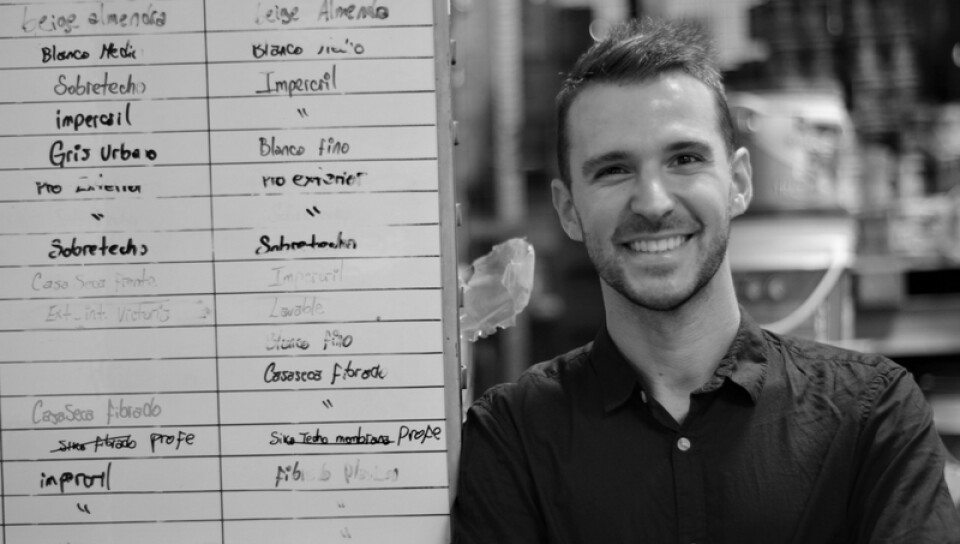 beige almendra beige Almendra
Blanco Blanco
Sobretecho Impercril
impercril "
Gris Urbano Blanco fino
Pro Exterior Pro exterior
" "
Sobretecho Sobretecho
Casa Seca frente Impercril
Ext. int. Lavable
Blanco fino
Casaseca fibrado
CasaSeca fibrado "
Sika fibrado Profe Sika Techo membrana Profe
impercril
" "
"